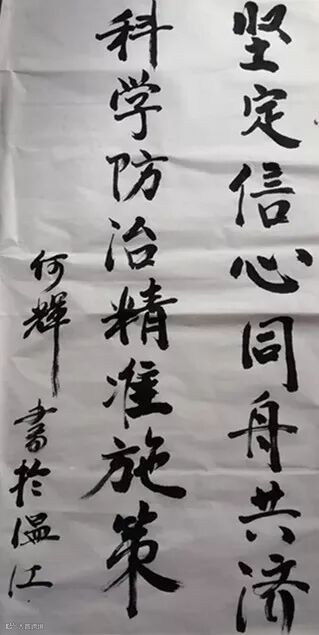 坚定信心同舟共济
科学防治精准施策
何辉
書於温江